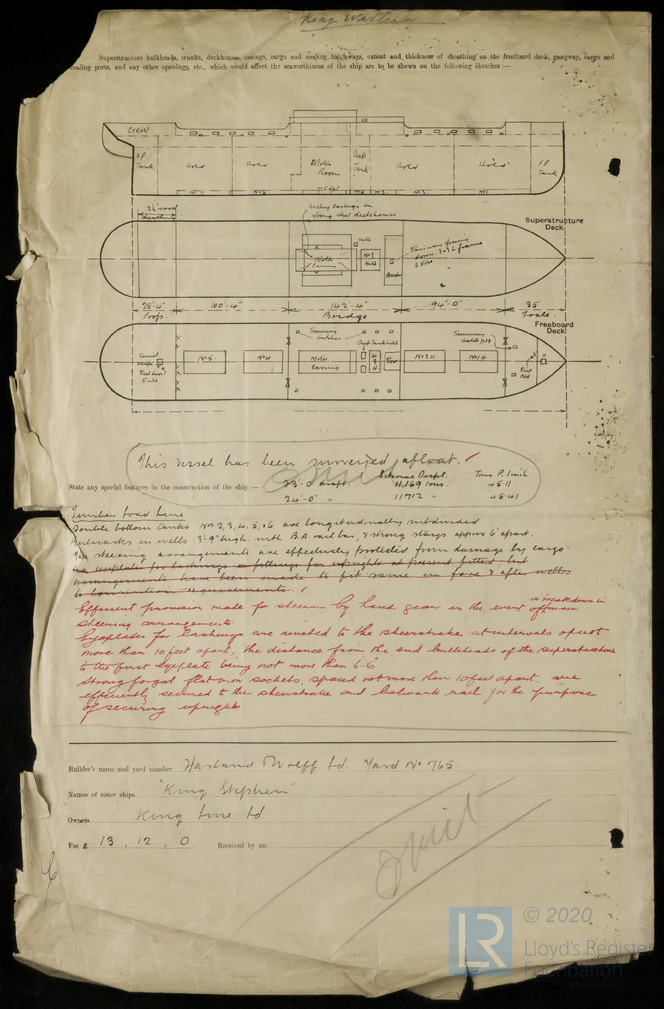 King William
Superstructure bulkheads, trunks, deckhouses, casings, cargo and coaling hatchways, extent and thickness of sheathing on the freeboard deck, gangway, cargo and
coaling ports, and any other openings, etc., which would affect the seaworthiness of the ship are to be shewn on the following sketches :—
Crew
AP Tank
Hold
Hold
Motor Room
Deep Tank
Hold
Hold
FP Tank
2½" wood
Sheathing
Motor casings in
strong steel deckhouse
Superstructure
Deck
Hatch
Motor
Casing
28'-4"
100'-4"
142'-4"
94'-0"
35'
Poop
Bridge
Focsle
Freeboard
Deck
Trimming
Hatches
Deep Tank hatch
Trimming
Hatch
Tunnel
escape
No 5
No 4
Motor
Casing
No 2 H
No 1 H
This vessel has been surveyed afloat.
State any special features in the construction of the ship :—
23'-0 draft.
11,169 tons.
Tons P. Inch
45.11
24'-0" "
11712 "
45.41
Omit
Timber Load Line
Double bottom Tanks Nos 2, 3, 4, 5, & 6 are longitudinally subdivided
Bulwarks in wells 3'-9" high with B.A. rail bar, & strong stays approx 6' apart.
The steering arrangements are effectively protected from damage by cargo
No eyeplates for lashings or fittings for uprights at present fitted but
arrangements have been made to fit same in fore & after wells
to convention requirements.
Efficient provision made for steering by hand gear in the event of a breakdown in main
steering arrangements.
Eyeplates for lashings are riveted to the sheerstrake at intervals of not
more than 10 feet apart, the distance from the end bulkheads of the superstructure
to the first eyeplate being not more than 6'-6"
Strong forged flat iron sockets, spaced not more than 10 feet apart, are
efficiently secured to the sheerstrake and bulwark rail for the purpose
of securing uprights
Builder's name and yard number Harland Wolff Ld. Yard No 765.
Names of sister ships "King Stephen"
Owners King Line Ld
Fee £ 13 , 12 , 0 Received by me
Omit
LR
© 2020
Lloyd's Register
Foundation